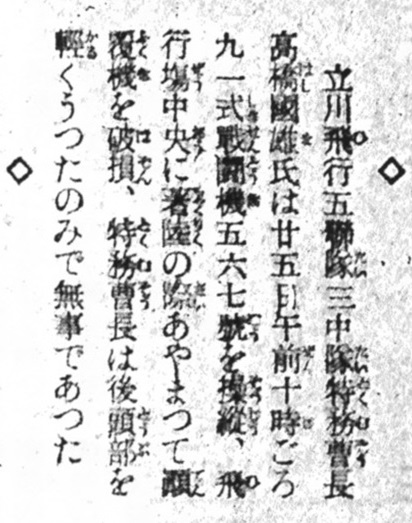 立川飛行五聯隊三中隊特務曹長
高橋國雄氏は廿五日午前十時ごろ
九一式戰鬪機五六七號を操縦、飛
行場中央に著陸の際あやまつて顚
覆機を破損、特務曹長は後頭部を
輕くうつたのみで無事であつた